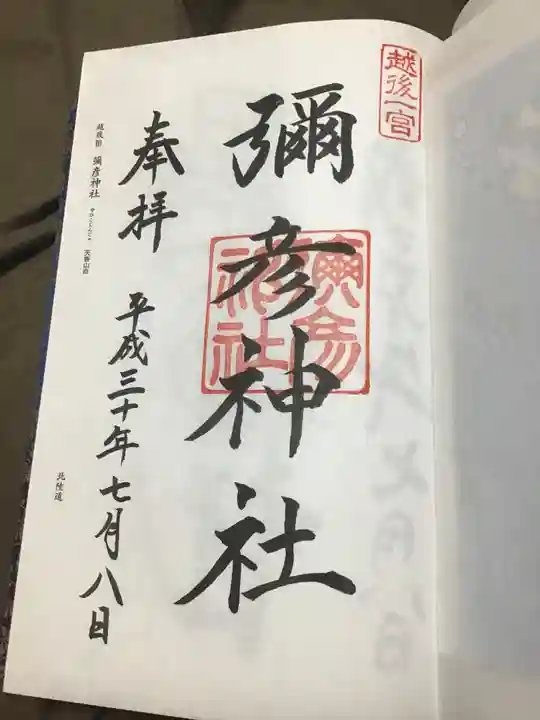 越後一宮
彌彦神社
彌彦
神社
奉拝
平成三十年七月八日
越後国 彌彦神社 やひこじんじゃ 天香山命
北陸道